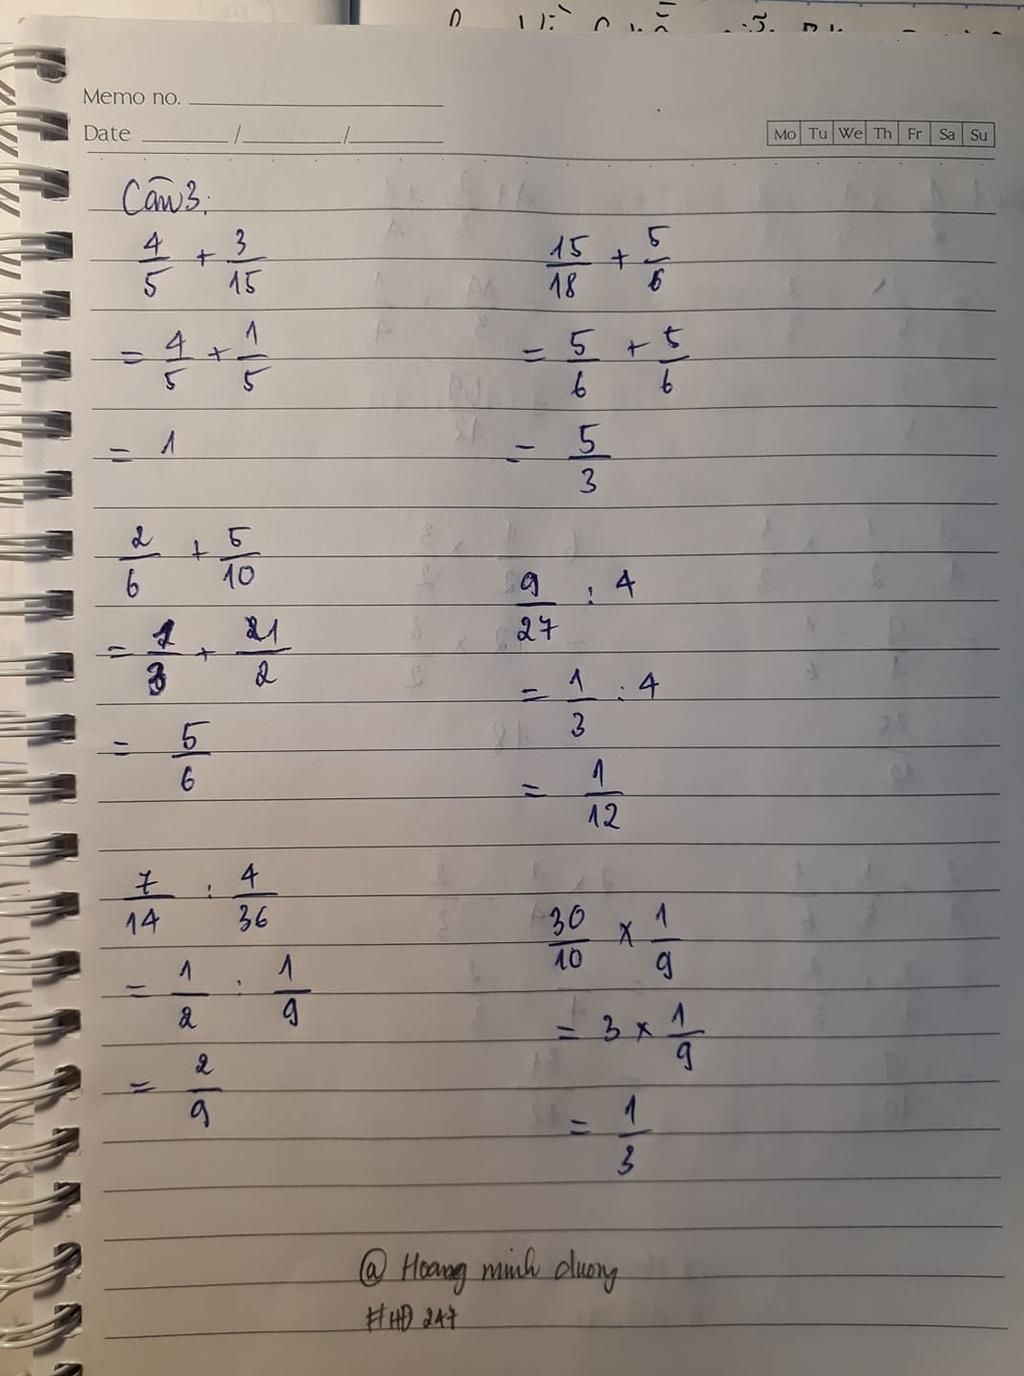 Memo no.
Date / /
Mo Tu We Th Fr Sa Su
Câu 3:
4/5 + 3/15
= 4/5 + 1/5
= 1
15/18 + 5/6
= 5/6 + 5/6
= 5/3
2/6 + 5/10
= 1/3 + 1/2
= 5/6
9/27 : 4
= 1/3 : 4
= 1/12
7/14 : 4/36
= 1/2 : 1/9
= 2/9
30/10 × 1/9
= 3 × 1/9
= 1/3
@ Hoang minh duong
#HD 247